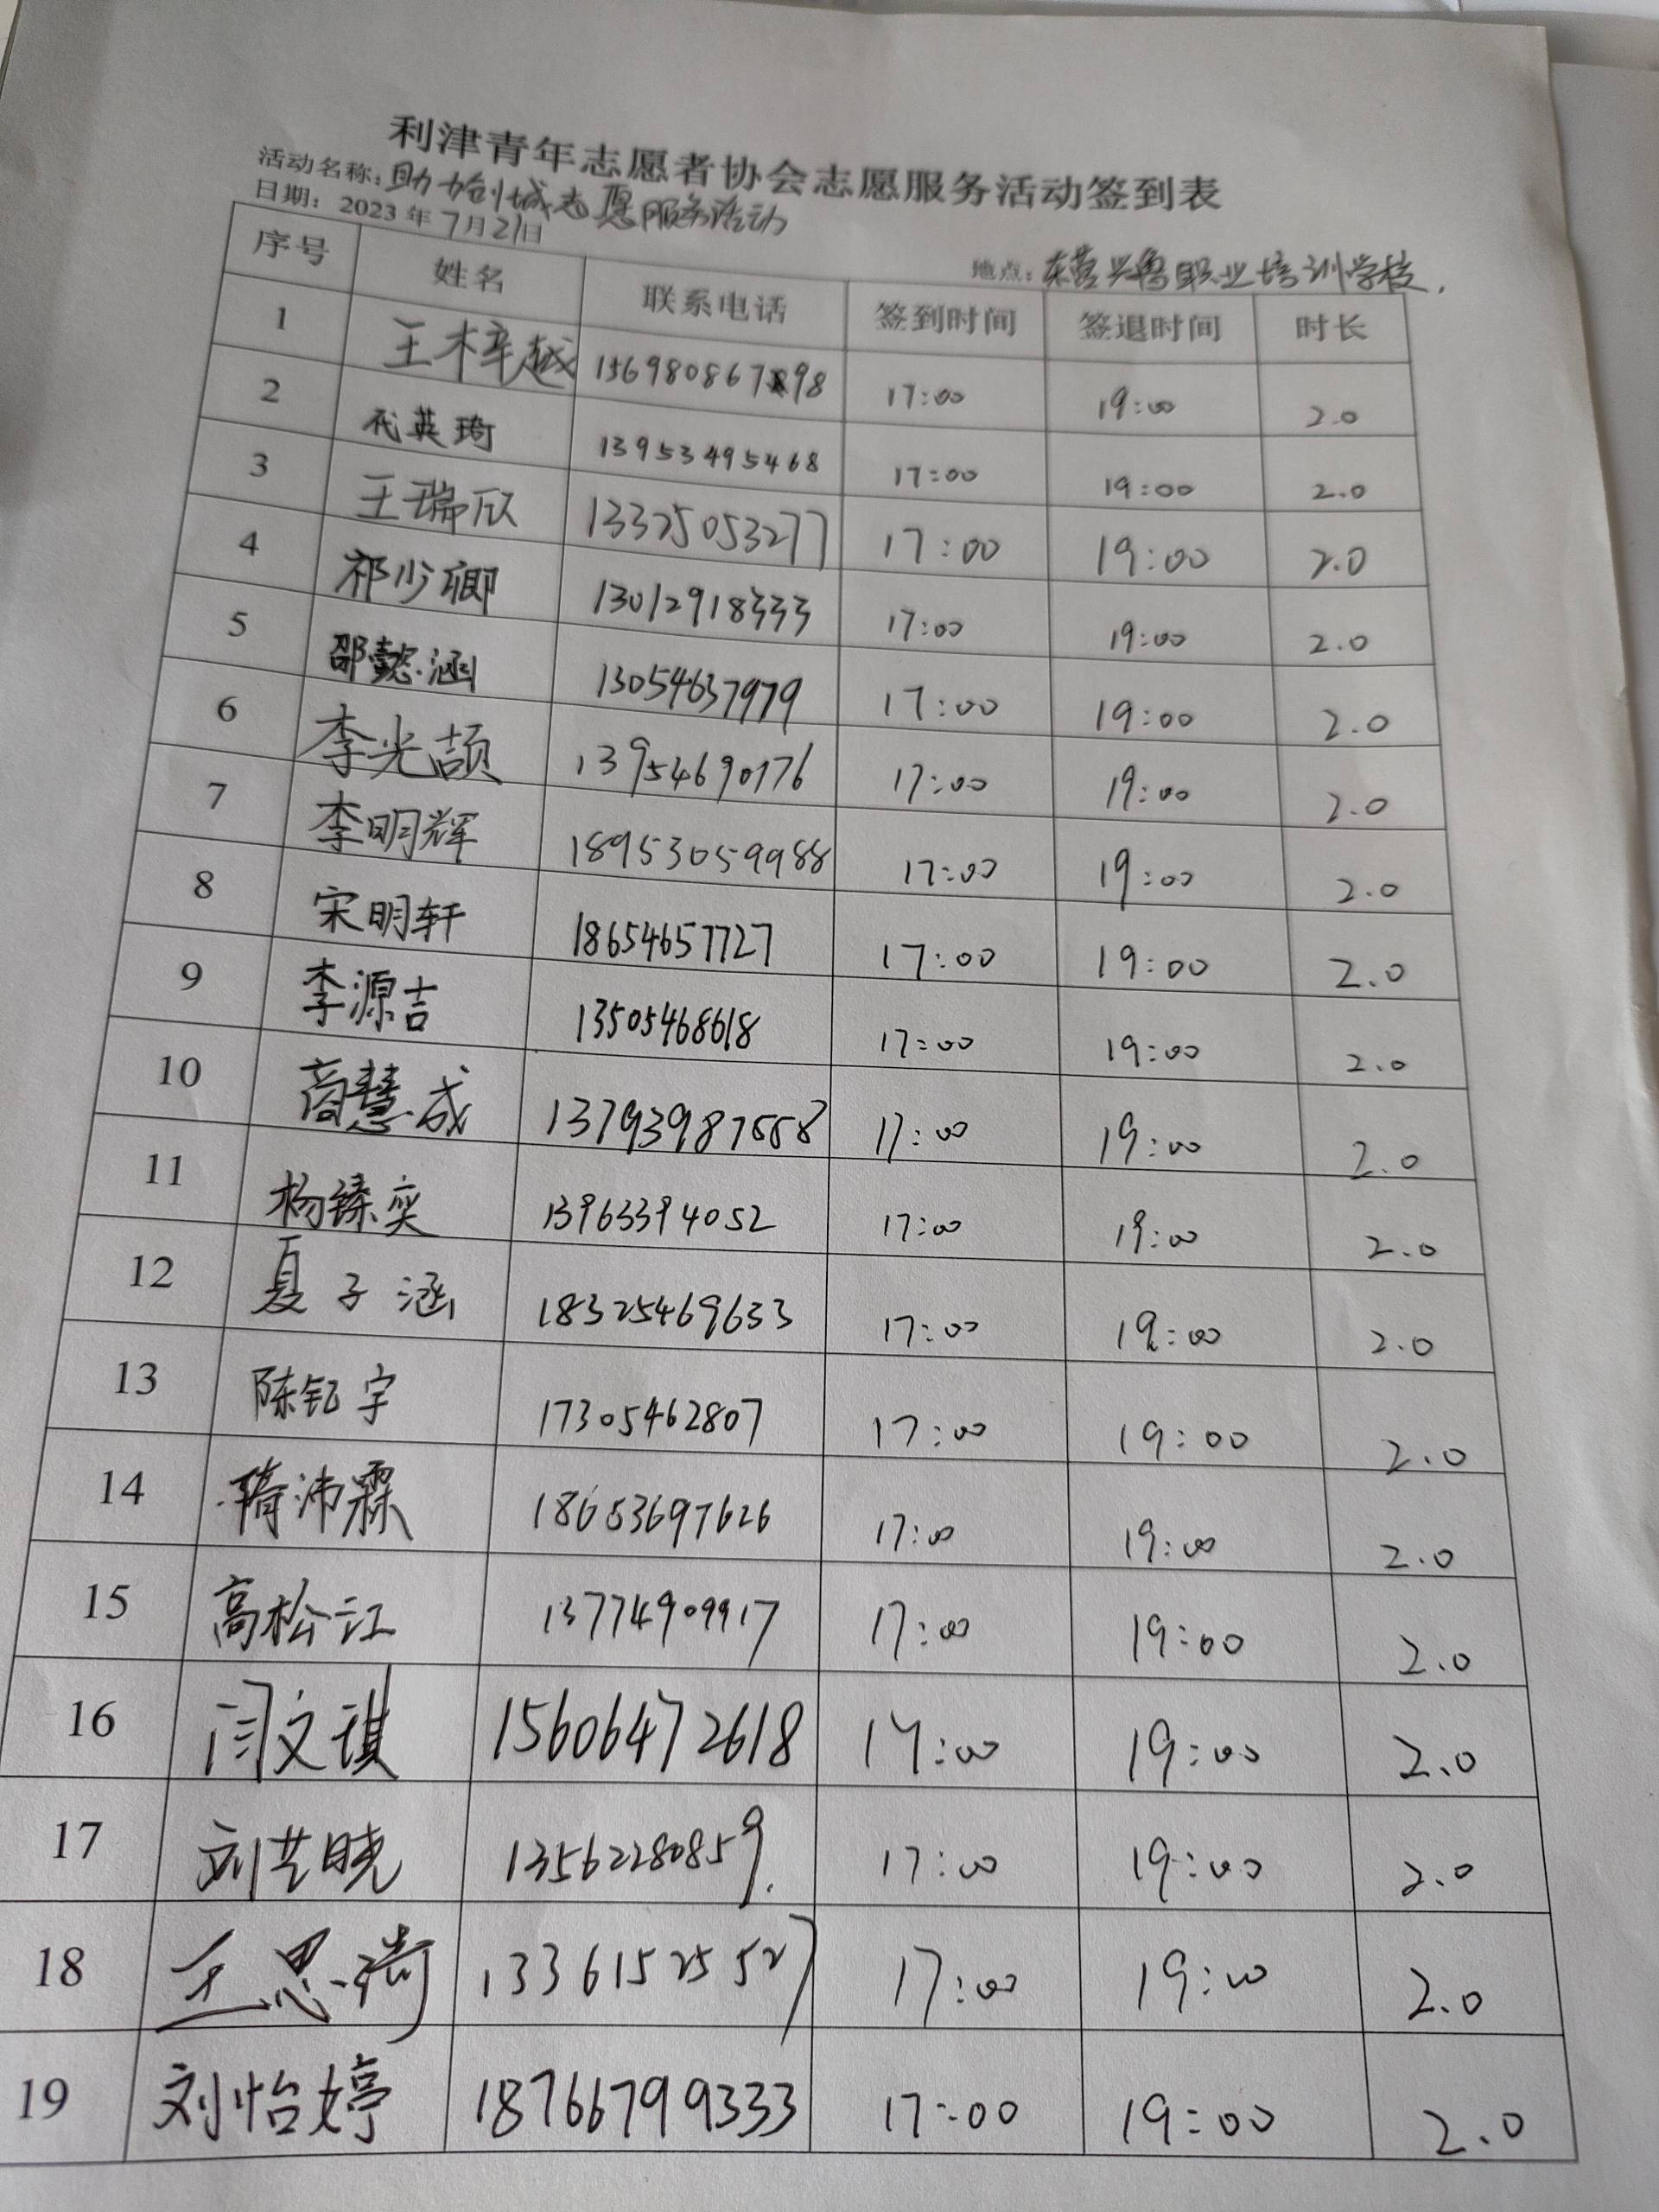 利津青年志愿者协会志愿服务活动签到表
活动名称:助力创城志愿服务活动
日期: 2023年7月21日 地点:东营兴鲁职业培训学校.
序号 姓名 联系电话 签到时间 签退时间 时长
1 王梓越 1569808678 98 17:00 19:00 2.0
2 代英琦 13953495468 17:00 19:00 2.0
3 王瑞欣 13325053277 17:00 19:00 2.0
4 祁少卿 13012918333 17:00 19:00 2.0
5 邵懿涵 13054637979 17:00 19:00 2.0
6 李光颉 13954690176 17:00 19:00 2.0
7 李明辉 18953059988 17:00 19:00 2.0
8 宋明轩 18654657727 17:00 19:00 2.0
9 李源吉 13505468618 17:00 19:00 2.0
10 商慧成 17:00 19:00 2.0
11 杨臻奕 13963394052 17:00 19:00 2.0
12 夏子涵 18325469633 17:00 19:00 2.0
13 陈钇宇 17305462807 17:00 19:00 2.0
14 隋沛霖 18653697626 17:00 19:00 2.0
15 高松江 13774909917 17:00 19:00 2.0
16 闫文琪 15606472618 17:00 19:00 2.0
17 刘芸晓 13562280859. 17:00 19:00 2.0
18 王思琦 13361525527 17:00 19:00 2.0
19 刘怡婷 18766799333 17:00 19:00 2.0